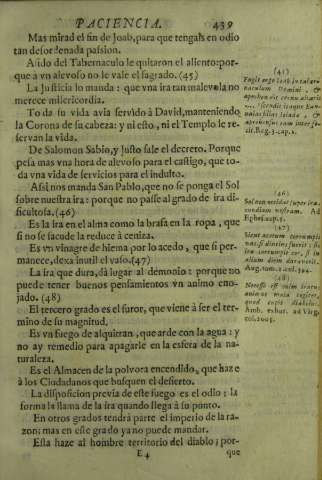 PACIENCIA. 439
Mas mirad el fin de Joab, para que tengais en odio
tan desordenada passion.
Asido del Tabernaculo le quitaron el aliento: por-
que a vn alevoso no le vale el sagrado. (45)
La Justicia lo manda: que vna ira tan malevola no
merece misericordia.
Toda su vida avia servido à David, manteniendo
la Corona de su cabeza: y ni esto, ni el Templo le re-
servan la vida.
De Salomon Sabio, y Justo sale el decreto. Porque
pesa mas vna hora de alevoso para el castigo, que to-
da vna vida de servicios para el indulto.
Assi nos manda San Pablo, que no se ponga el Sol
sobre nuestra ira: porque no passe al grado de ira di-
ficultosa. (46)
Es la ira en el alma como la brasa en la ropa, que
si no se sacude la reduce à ceniza.
Es vn vinagre de hiema por lo acedo, que si per-
manece, dexa inutil el vaso. (47)
La ira que dura, dà lugar al demonio: porque no
puede tener buenos pensamientos vn animo eno-
jado. (48)
El tercero grado es el furor, que viene à ser el ter-
mino de su magnitud.
Es vn fuego de alquitran, que arde con la agua: y
no ay remedio para apagarle en la esfera de la na-
turaleza.
Es el Almacen de la polvora encendido, que haze
à los Ciudadanos que busquen el desierto.
La disposicion previa de este fuego es el odio: la
forma la llama de la ira quando llega à su punto.
En otros grados tendrà parte el imperio de la ra-
zon: mas en este grado ya no puede mandar.
Esta haze al hombre territorio del diablo; por-
E 4 que
(45)
Fugit ergo Ioab in taber-
naculum Domini, &
apprehendit cornu altaris
... Ascendit itaque Ban-
naias filius Ioiada, &
aggressus eum inter fe-
cit. Reg. 3. cap. 2.
(46)
Sol non occidat super ira-
cundiam vestram. Ad
Ephes. cap. 5.
(47)
Sicut acetum corrumpit
vas, si diutius fuerit: sic
ira corrumpit cor, si in
alium diem duraverit.
Aug. tom. 2. epist.
(48)
Necesse est enim irato
animo mala cogitet,
Amb. exhor. ad Virg.